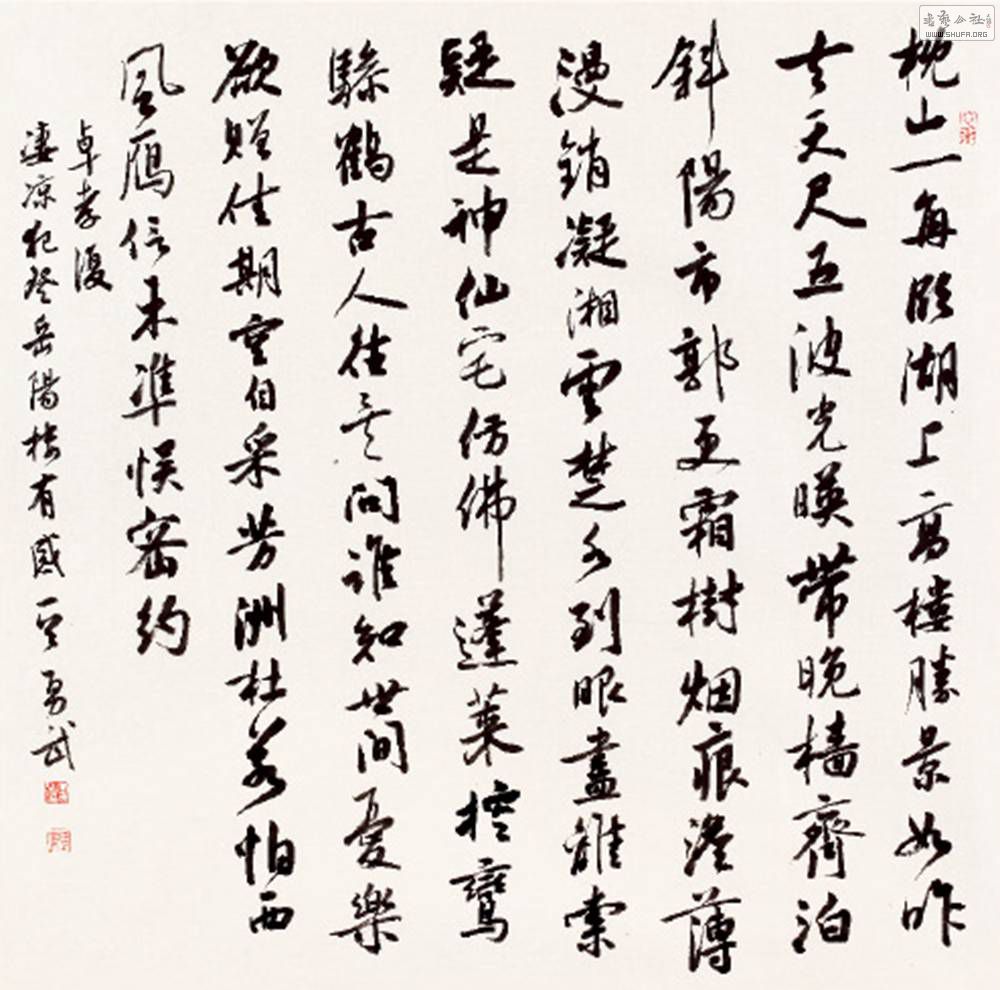 枕山一角臨湖上高樓勝景如昨
去天尺五波光暎帶晚檣齊泊
斜陽市郭更霜樹烟痕澹薄
漫銷凝湘雲楚水到眼盡離索
疑是神仙宅仿佛蓬萊控鸞
驂鶴古人往矣問誰知世間憂樂
欲贈佳期重自采芳洲杜若怕西
風鴈信未準悮密約
卓孝復
淒凉犯登岳陽樓有感 勇武
書藝公社
WWW.SHUFA.ORG